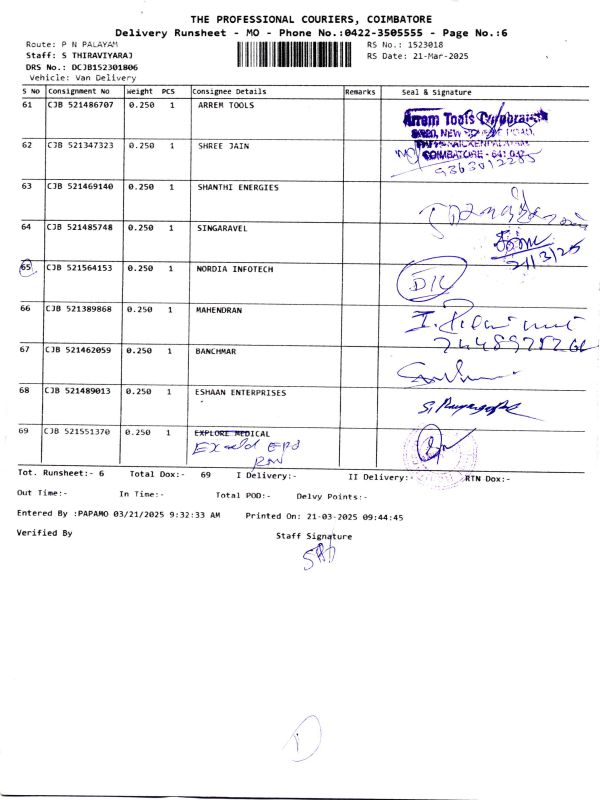 THE PROFESSIONAL COURIERS, COIMBATORE
Delivery Runsheet - MO - Phone No.:0422-3505555 - Page No.:6
Route: P N PALAYAM RS No.: 1523018
Staff: S THIRAVIYARAJ RS Date: 21-Mar-2025
DRS No.: DCJB152301806
Vehicle: Van Delivery
S No Consignment No Weight PCS Consignee Details Remarks Seal & Signature
61 CJB 521486707 0.250 1 ARREM TOOLS
Arrem Tools Corporation
COIMBATORE - 641 037
62 CJB 521347323 0.250 1 SHREE JAIN
63 CJB 521469140 0.250 1 SHANTHI ENERGIES
64 CJB 521485748 0.250 1 SINGARAVEL
21/3/25
65 CJB 521564153 0.250 1 NORDIA INFOTECH
66 CJB 521389868 0.250 1 MAHENDRAN
67 CJB 521462059 0.250 1 BANCHMAR
68 CJB 521489013 0.250 1 ESHAAN ENTERPRISES
69 CJB 521551370 0.250 1 EXPLORE MEDICAL
Tot. Runsheet:- 6 Total Dox:- 69 I Delivery:- II Delivery:- RTN Dox:-
Out Time:- In Time:- Total POD:- Delvy Points:-
Entered By :PAPAMO 03/21/2025 9:32:33 AM Printed On: 21-03-2025 09:44:45
Verified By Staff Signature
D